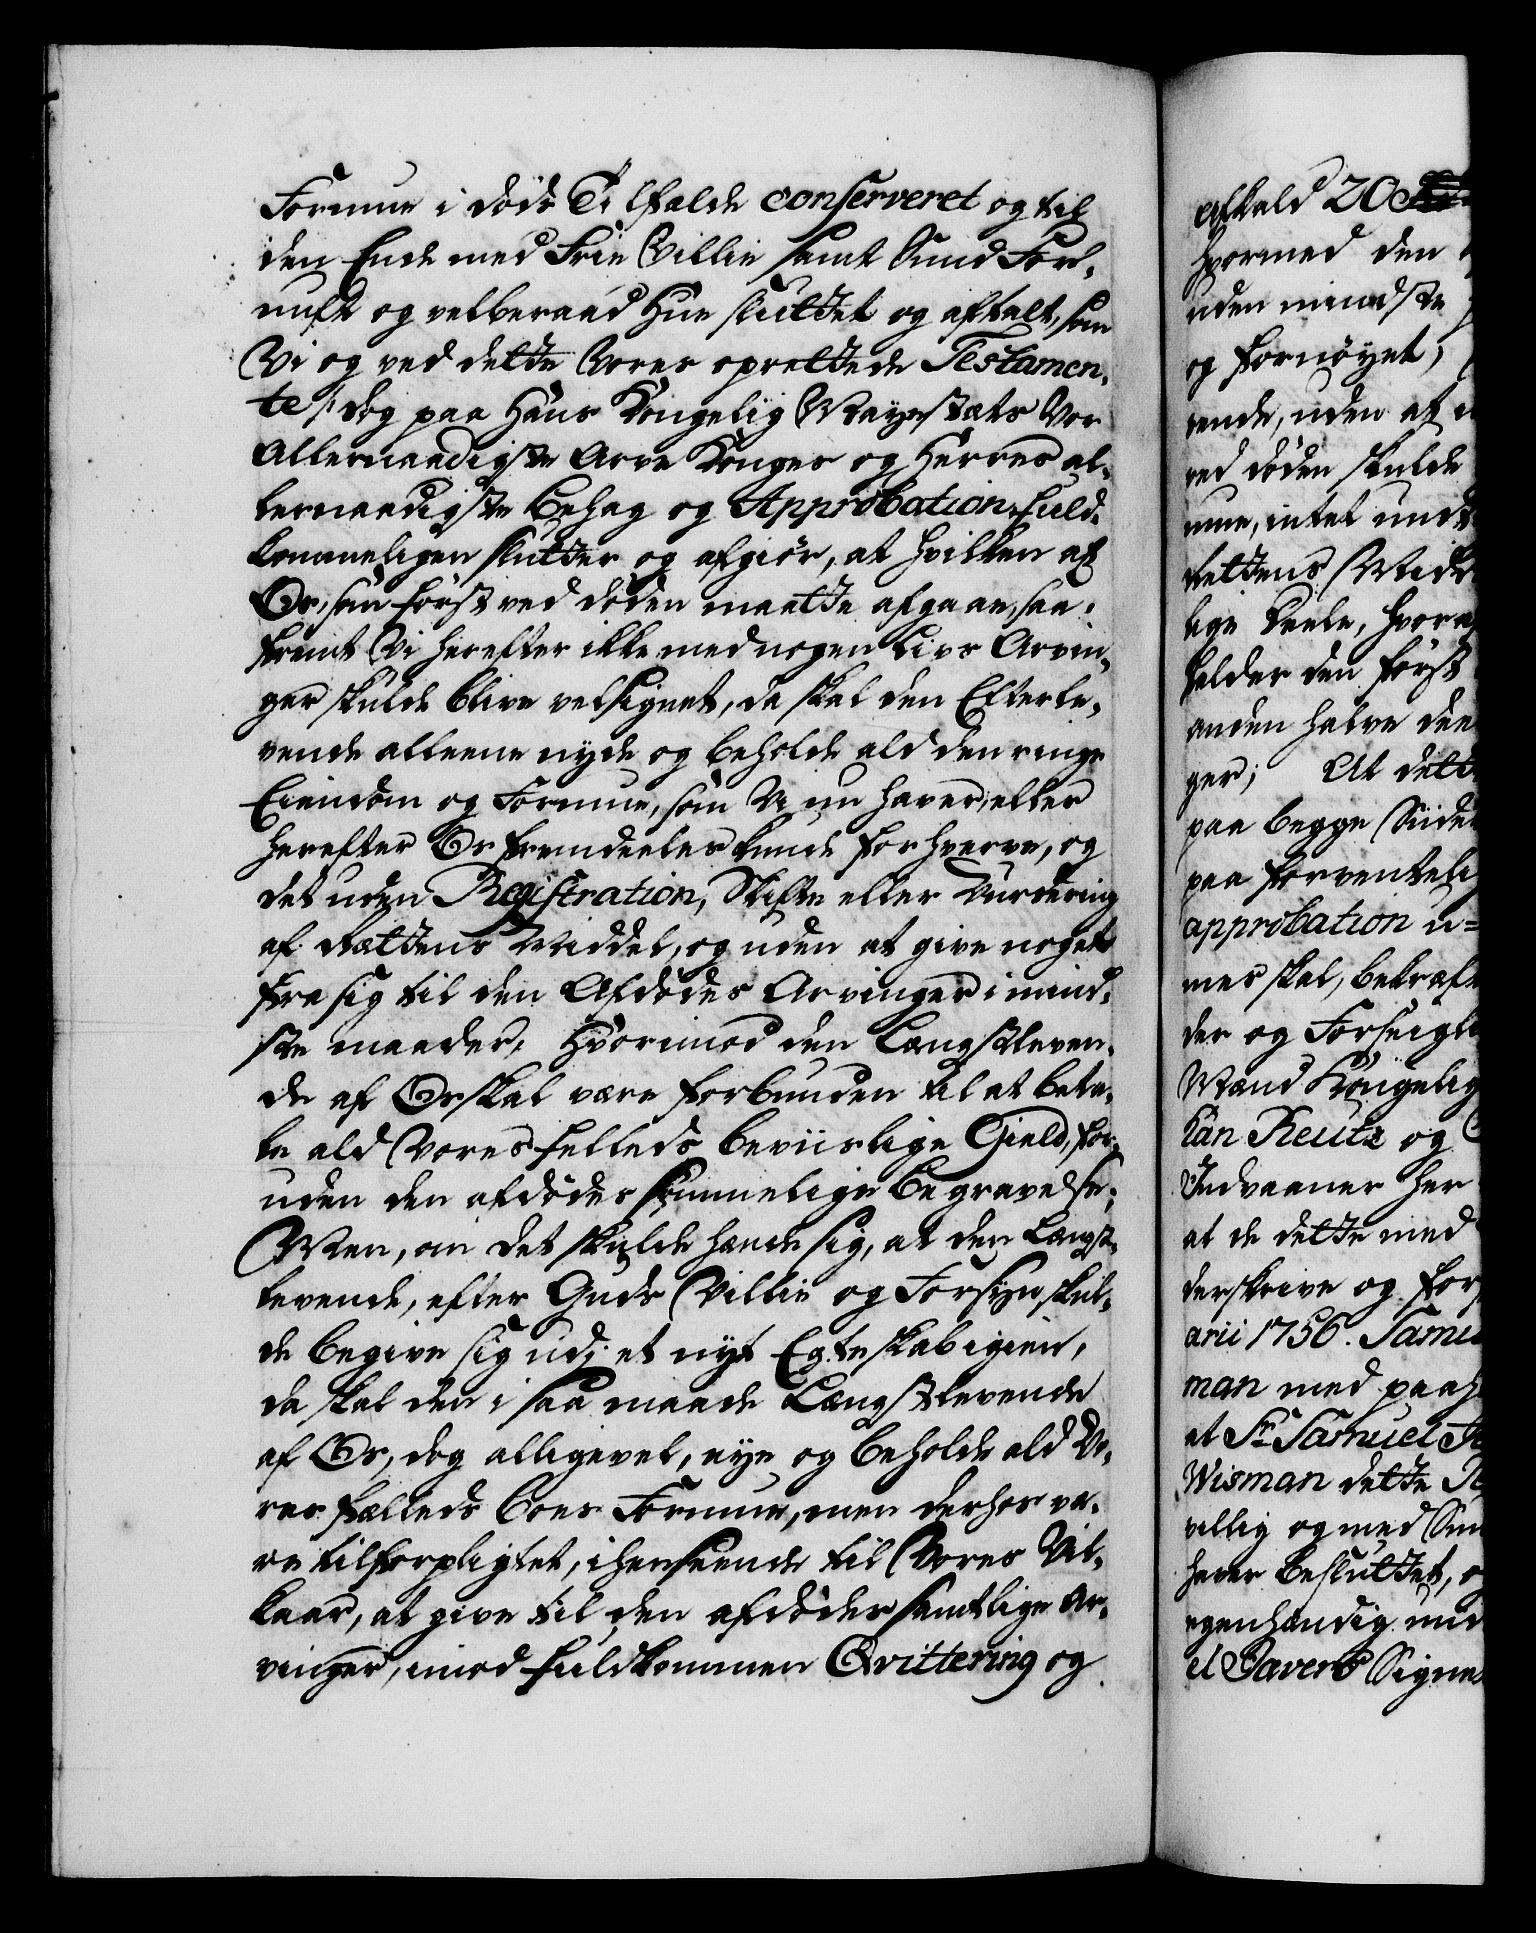 Formue i døds Tilfælde conserveret og til
den Ende med Frie Villie samt Sund For-
nuft og velberaad Hue sluttet og aftalt, som
Vi og ved dette Vores oprettede Testamen-
te /: dog paa Hans Kongelig Mayestæts Vor
Allernaadigste Arve Konges og Herres al-
lernaadigste Behag og Approbation, fuld-
kommeligen slutter og afgiør, at hvilken af
Os, som først ved døden maatte afgaae, saa-
fremt Vi herefter ikke med nogen Livs Arvin-
ger skulde blive velsignet, da skal den Efterle-
vende alleene nyde og beholde ald den ringe
Eiendom og Formue, som Vi nu haver, eller
herefter Os fremdeeles kunde forhverve, og
det uden Registration, Skifte eller Vurdering
af Rættens Middel, og uden at give noget
fra sig til den Afdødes Arvinger i mind-
ste maader, Hvorimod den Længstleven-
de af Os skal være forbunden til at beta-
le ald Vores felleds beviislige Gield, for-
uden den afdødes sømmelige begravelse;
Men, om det skulde hænde sig, at den Længst-
levende, efter Guds Villie og Forsyn, skul-
de begive sig udi et nyt Egteskab igien,
da skal den i saa maade Længstlevende
af Os, dog alligevel, eye og beholde ald Vo-
res fælleds Boes Formue, men derhos væ-
re tilforpligtet, i henseende til Vores Vil-
kaar, at give til den afdødes samtlige Ar-
vinger, imod fuldkommen Qvittering og
Afkald 20
hvormed den
uden mindste
og fornøyet,
rende, uden at
ved døden skulde
mue, intet
Rettens
lige Deele,
holder den først
anden halve
ger; At dette
paa begge
paa
approbation u=
mer skal,
der og
Mænd
Reutz og
Indvaaner her
at de dette med
derskrive og
arii 1756.
man med
at Sr Samuel
Wisman dette
villig og med
haver besluttet,
egenhændig
el Pavers